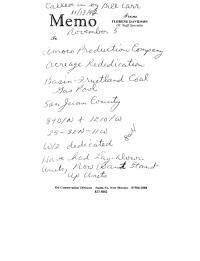 Called in by Bill Carr
11/13/
Memo
From
FLORENE DAVIDSON
OC Staff Specialist
November 5
To
Amoco Production Company
Acreage Rededication
Basin-Fruitland Coal
Gas Pool
San Juan County
890/N + 1210/W
29-32N-11W
W/2 dedicated
Have had lay-down
units, now want stand
up units
Oil Conservation Division Santa Fe, New Mexico 87504-2088
827-5802